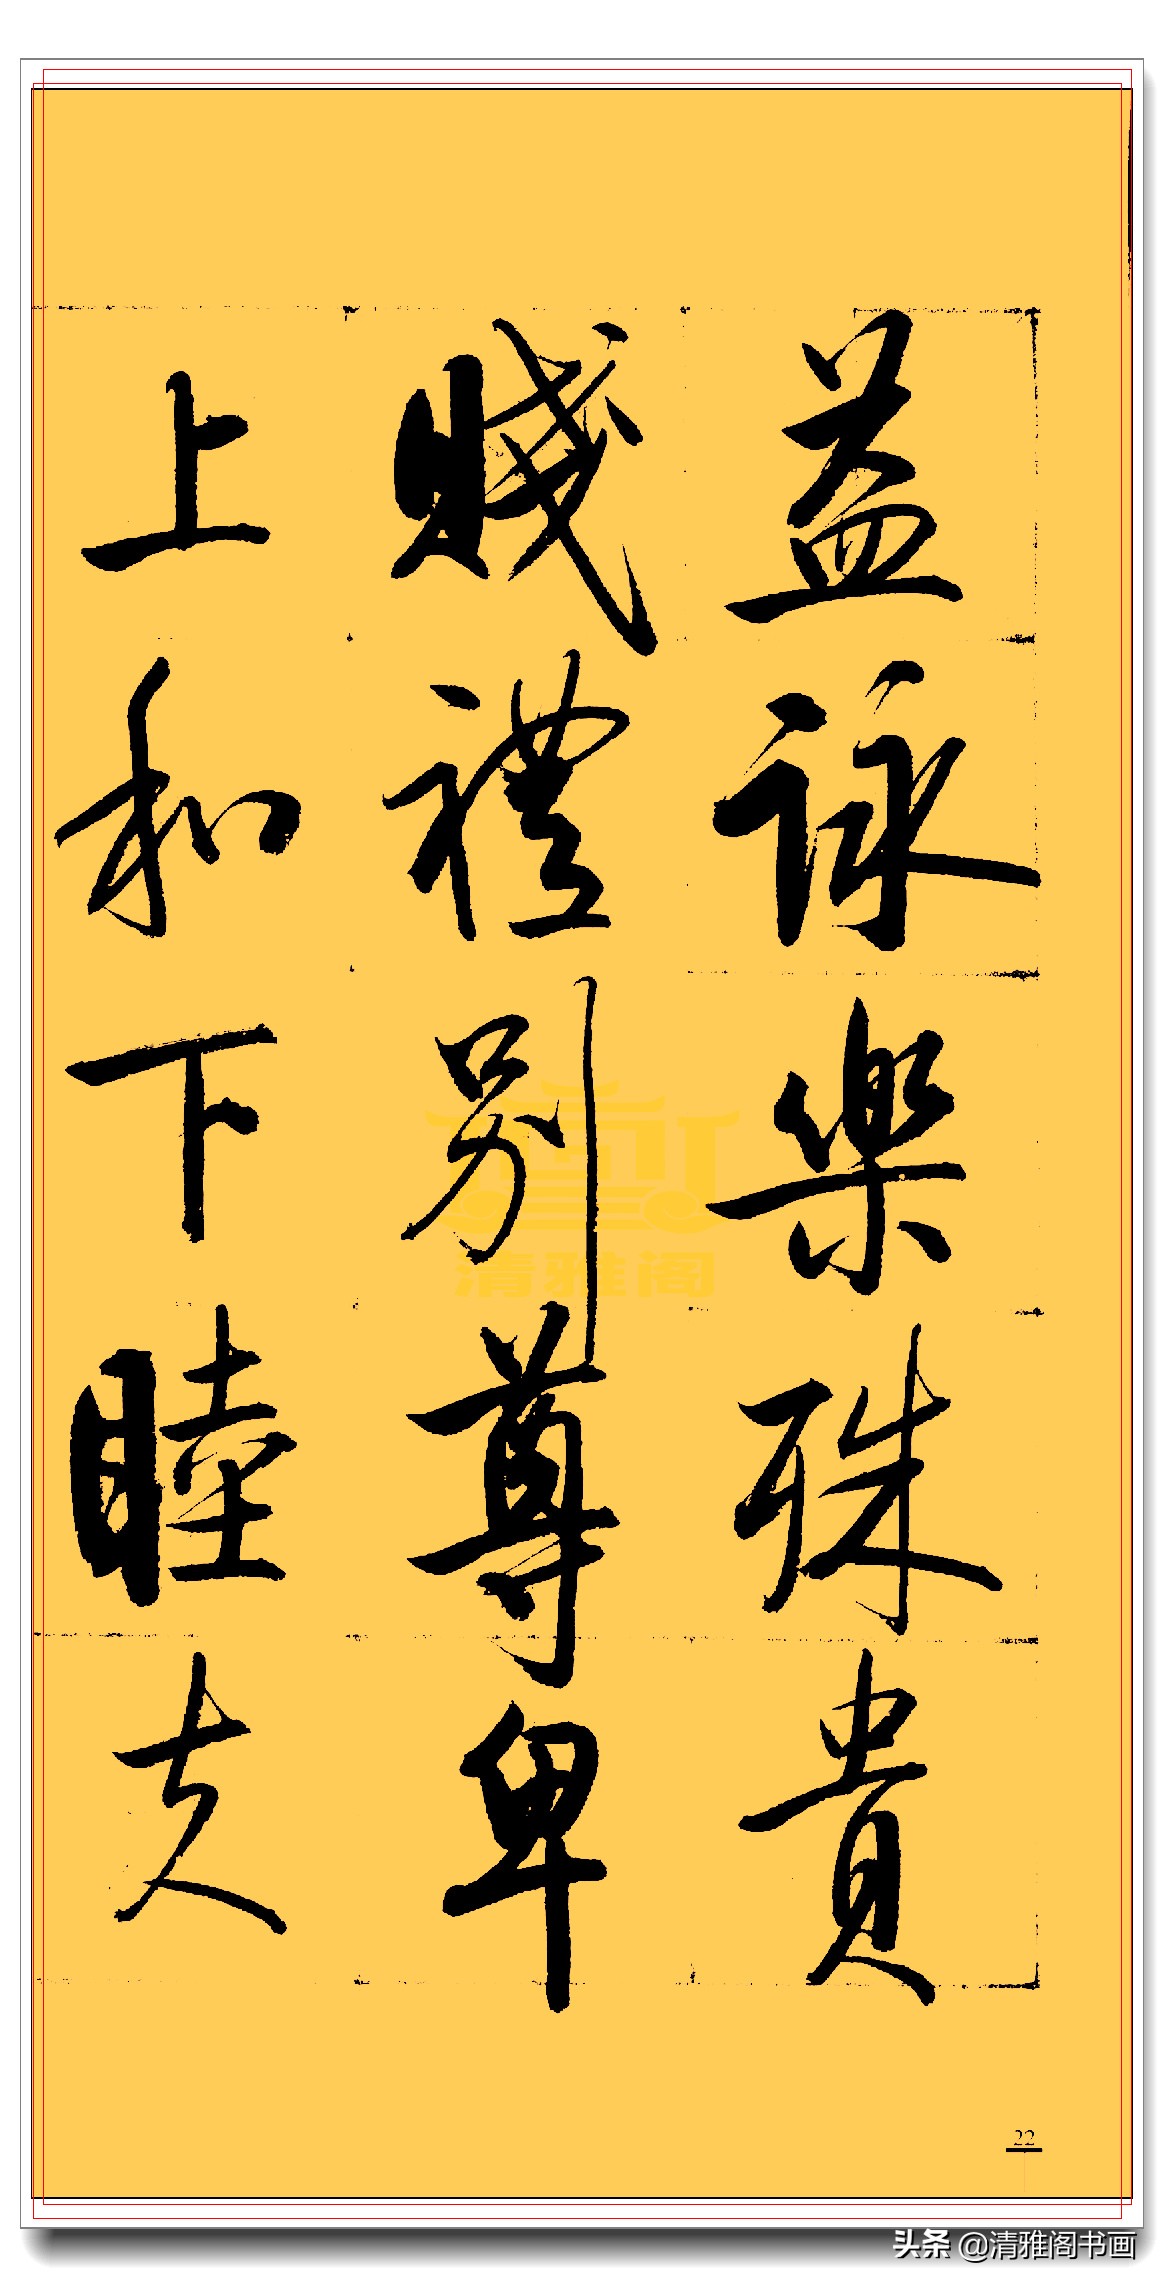 益詠樂殊貴
賤禮別尊卑
上和下睦夫
清雅阁
22
头条 @清雅阁书画